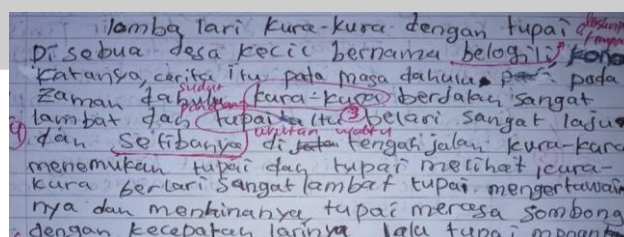 lomba lari kura-kura dengan tupai
Di sebua desa kecil bernama belogili, kono
katanya, cerita itu pada masa dahulu pada
sudut
zaman kura-kura berdalan sangat
pandang
lambat dan tupai itu 3 belari sangat laju
urutan waktu
dan setibanya di tengah jalan kura-kura
menemukan tupai dan tupai melihat kura-
kura berlari sangat lambat tupai mengertawai
nya dan menhinanya, tupai merasa sombong
dengan kecepatan larinya lalu tupai